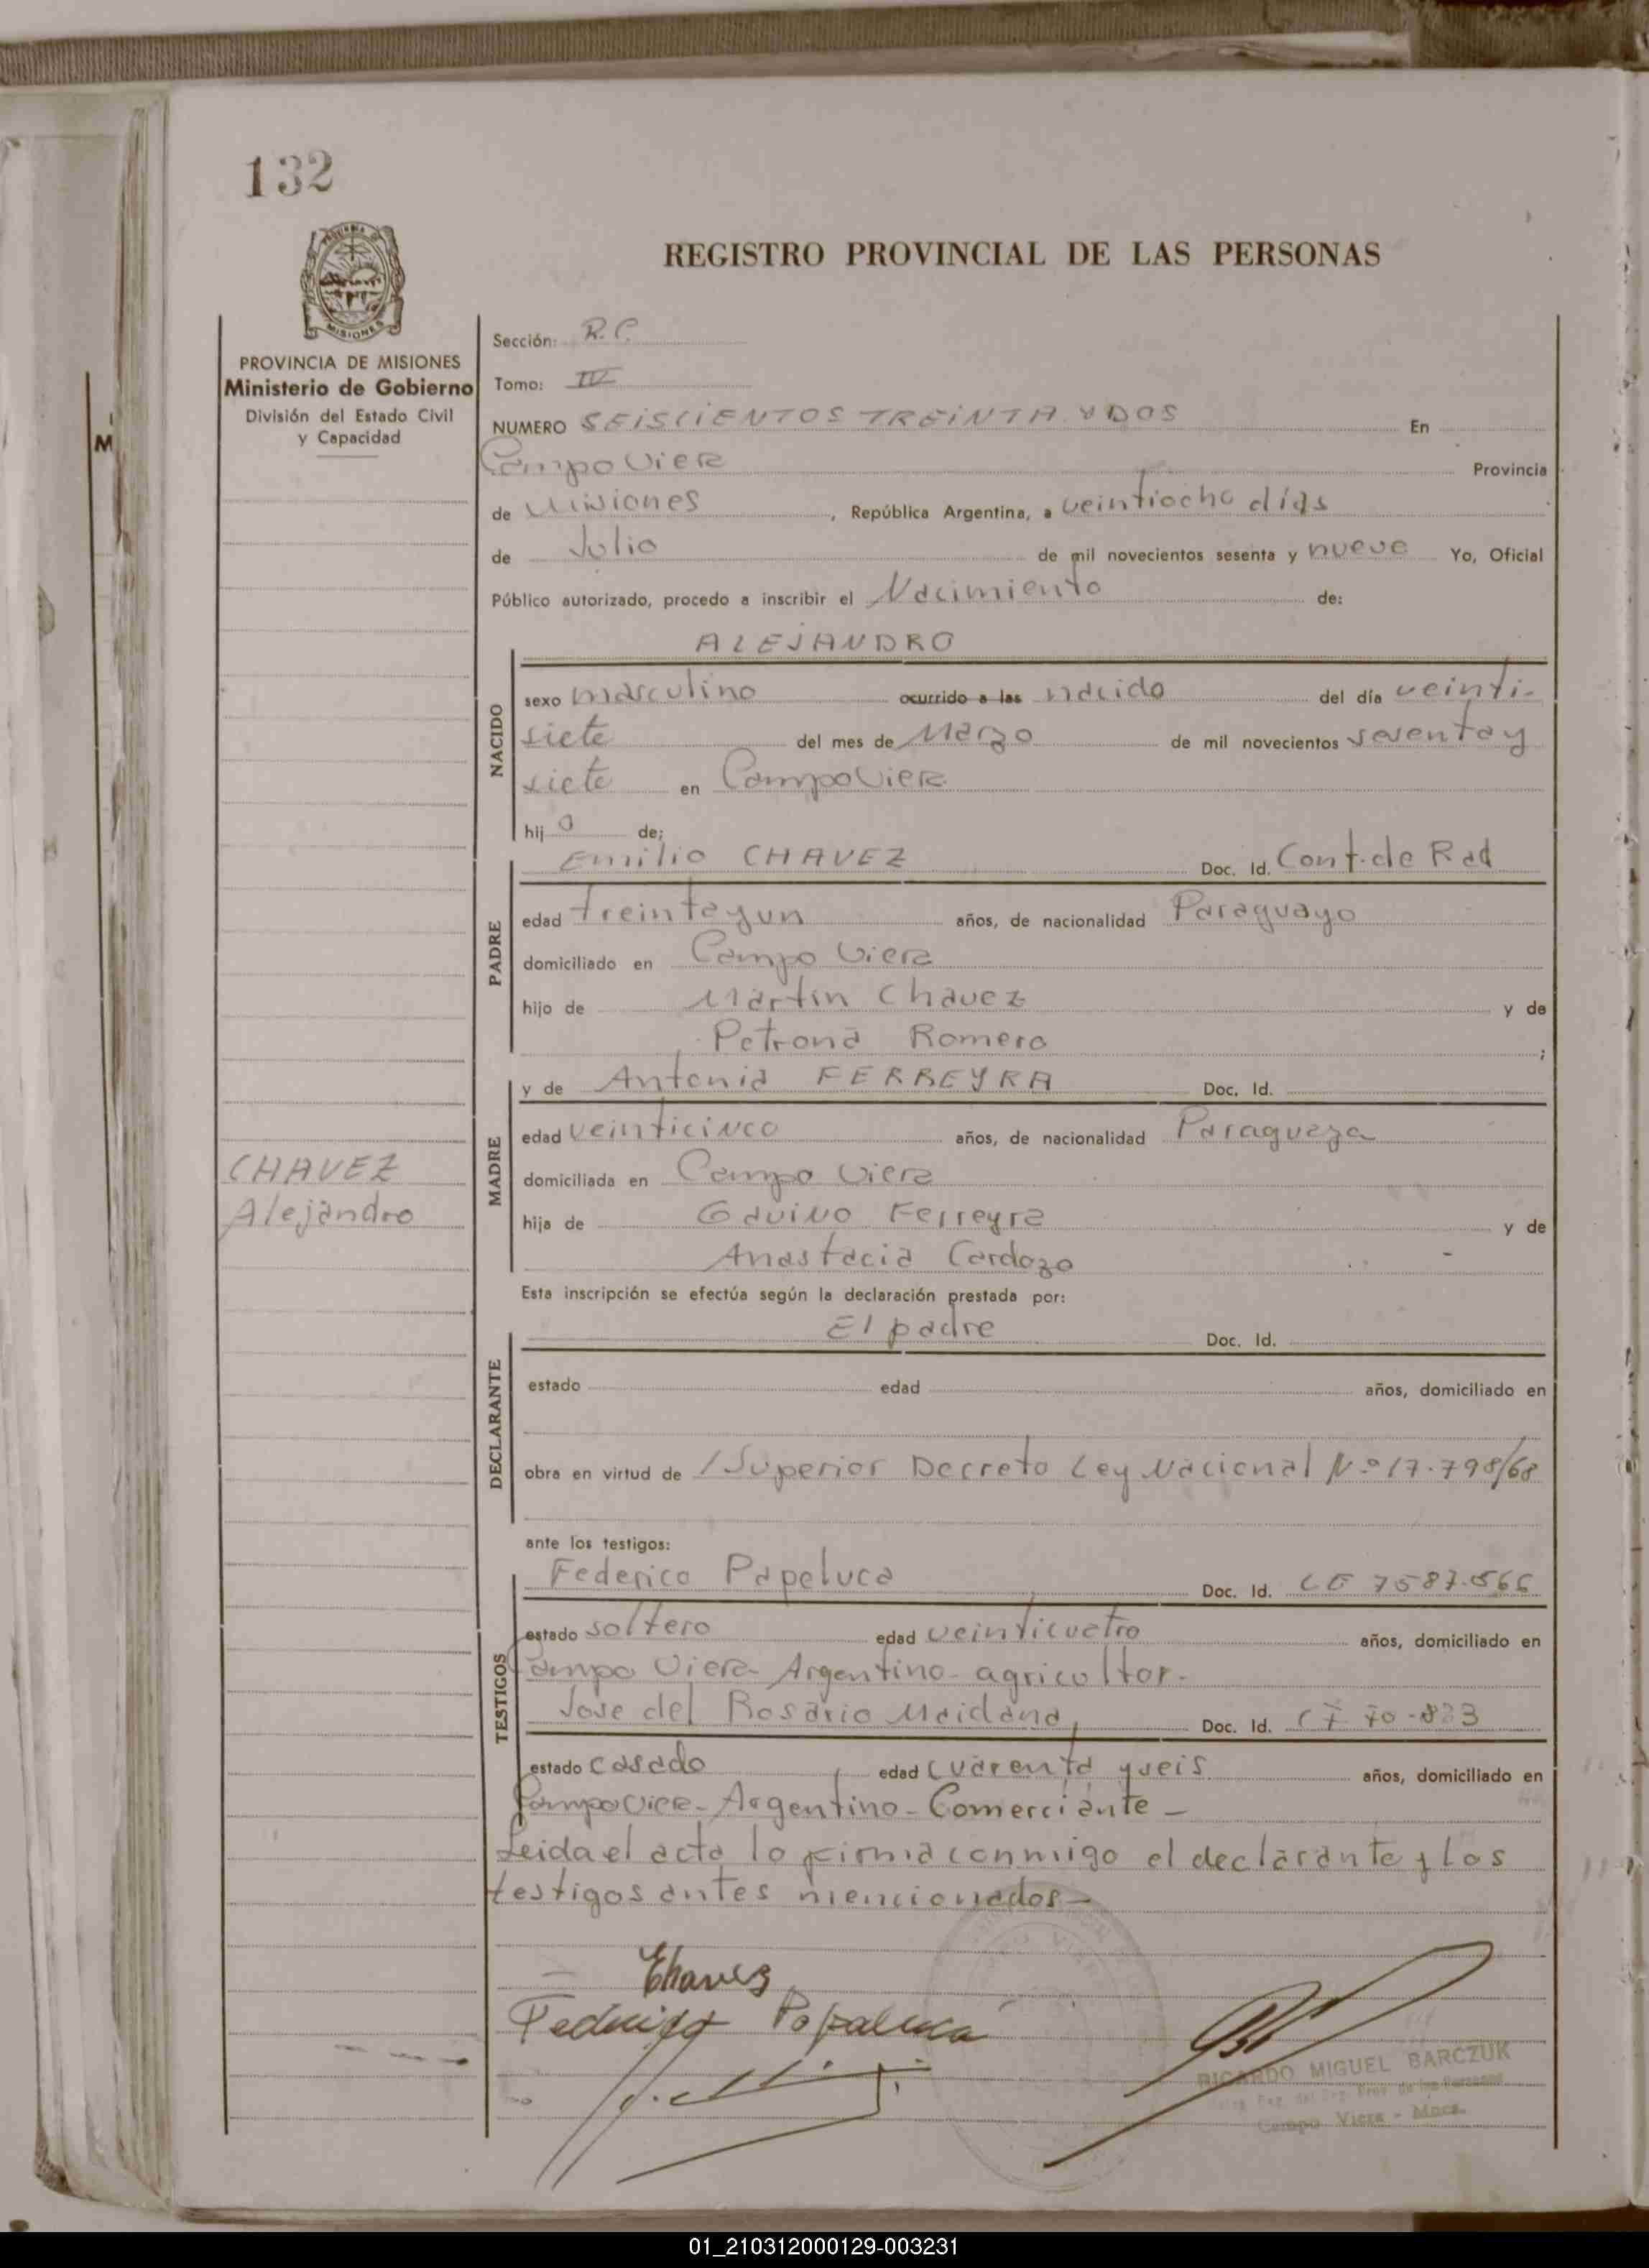 132
REGISTRO PROVINCIAL DE LAS PERSONAS
MISIONES
PROVINCIA DE MISIONES
Ministerio de Gobierno
División del Estado Civil
y Capacidad
Sección: R.C.
Tomo: IV
NUMERO SEISCIENTOS TREINTA Y DOS En
Campo Viera Provincia
de Misiones , República Argentina, a veintiocho días
de Julio de mil novecientos sesenta y nueve Yo, Oficial
Público autorizado, procedo a inscribir el Nacimiento de:
NACIDO
ALEJANDRO
sexo masculino ocurrido a las nacido del día veinti-
siete del mes de Marzo de mil novecientos sesenta y
siete en Campo Viera
hijo de;
PADRE
Emilio CHAVEZ Doc. Id. Cont. de Rad
edad treintayun años, de nacionalidad Paraguayo
domiciliado en Campo Viera
hijo de Martin Chavez y de
Petrona Romero ;
MADRE
y de Antonia FERREYRA Doc. Id.
edad veinticinco años, de nacionalidad Paraguaya
domiciliada en Campo Viera
hija de Gavino Ferreyra y de
Anastacia Cardozo
CHAVEZ
Alejandro
Esta inscripción se efectúa según la declaración prestada por:
DECLARANTE
El padre Doc. Id.
estado edad años, domiciliado en
obra en virtud de /Superior Decreto Ley Nacional Nº 17.798/68
ante los testigos:
TESTIGOS
Federico Papeluca Doc. Id. LE 7587.566
estado soltero edad veinticuatro años, domiciliado en
Campo Viera- Argentino- agricultor-
Jose del Rosario Maidana, Doc. Id.
estado casado edad cuarenta y seis años, domiciliado en
Campo Viera- Argentino- Comerciante-
Leida el acta lo firma conmigo el declarante y los
testigos antes mencionados-
Chavez
Federico Papaluca
RICARDO MIGUEL BARCZUK
Campo Viera - Mnes.
01_210312000129-003231